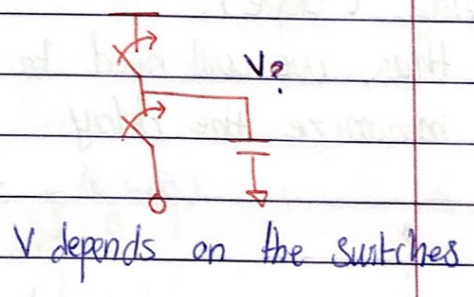 V?
V depends on the switches